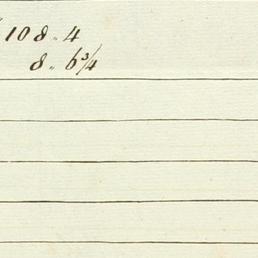 108 " 4
8 " 6 3/4